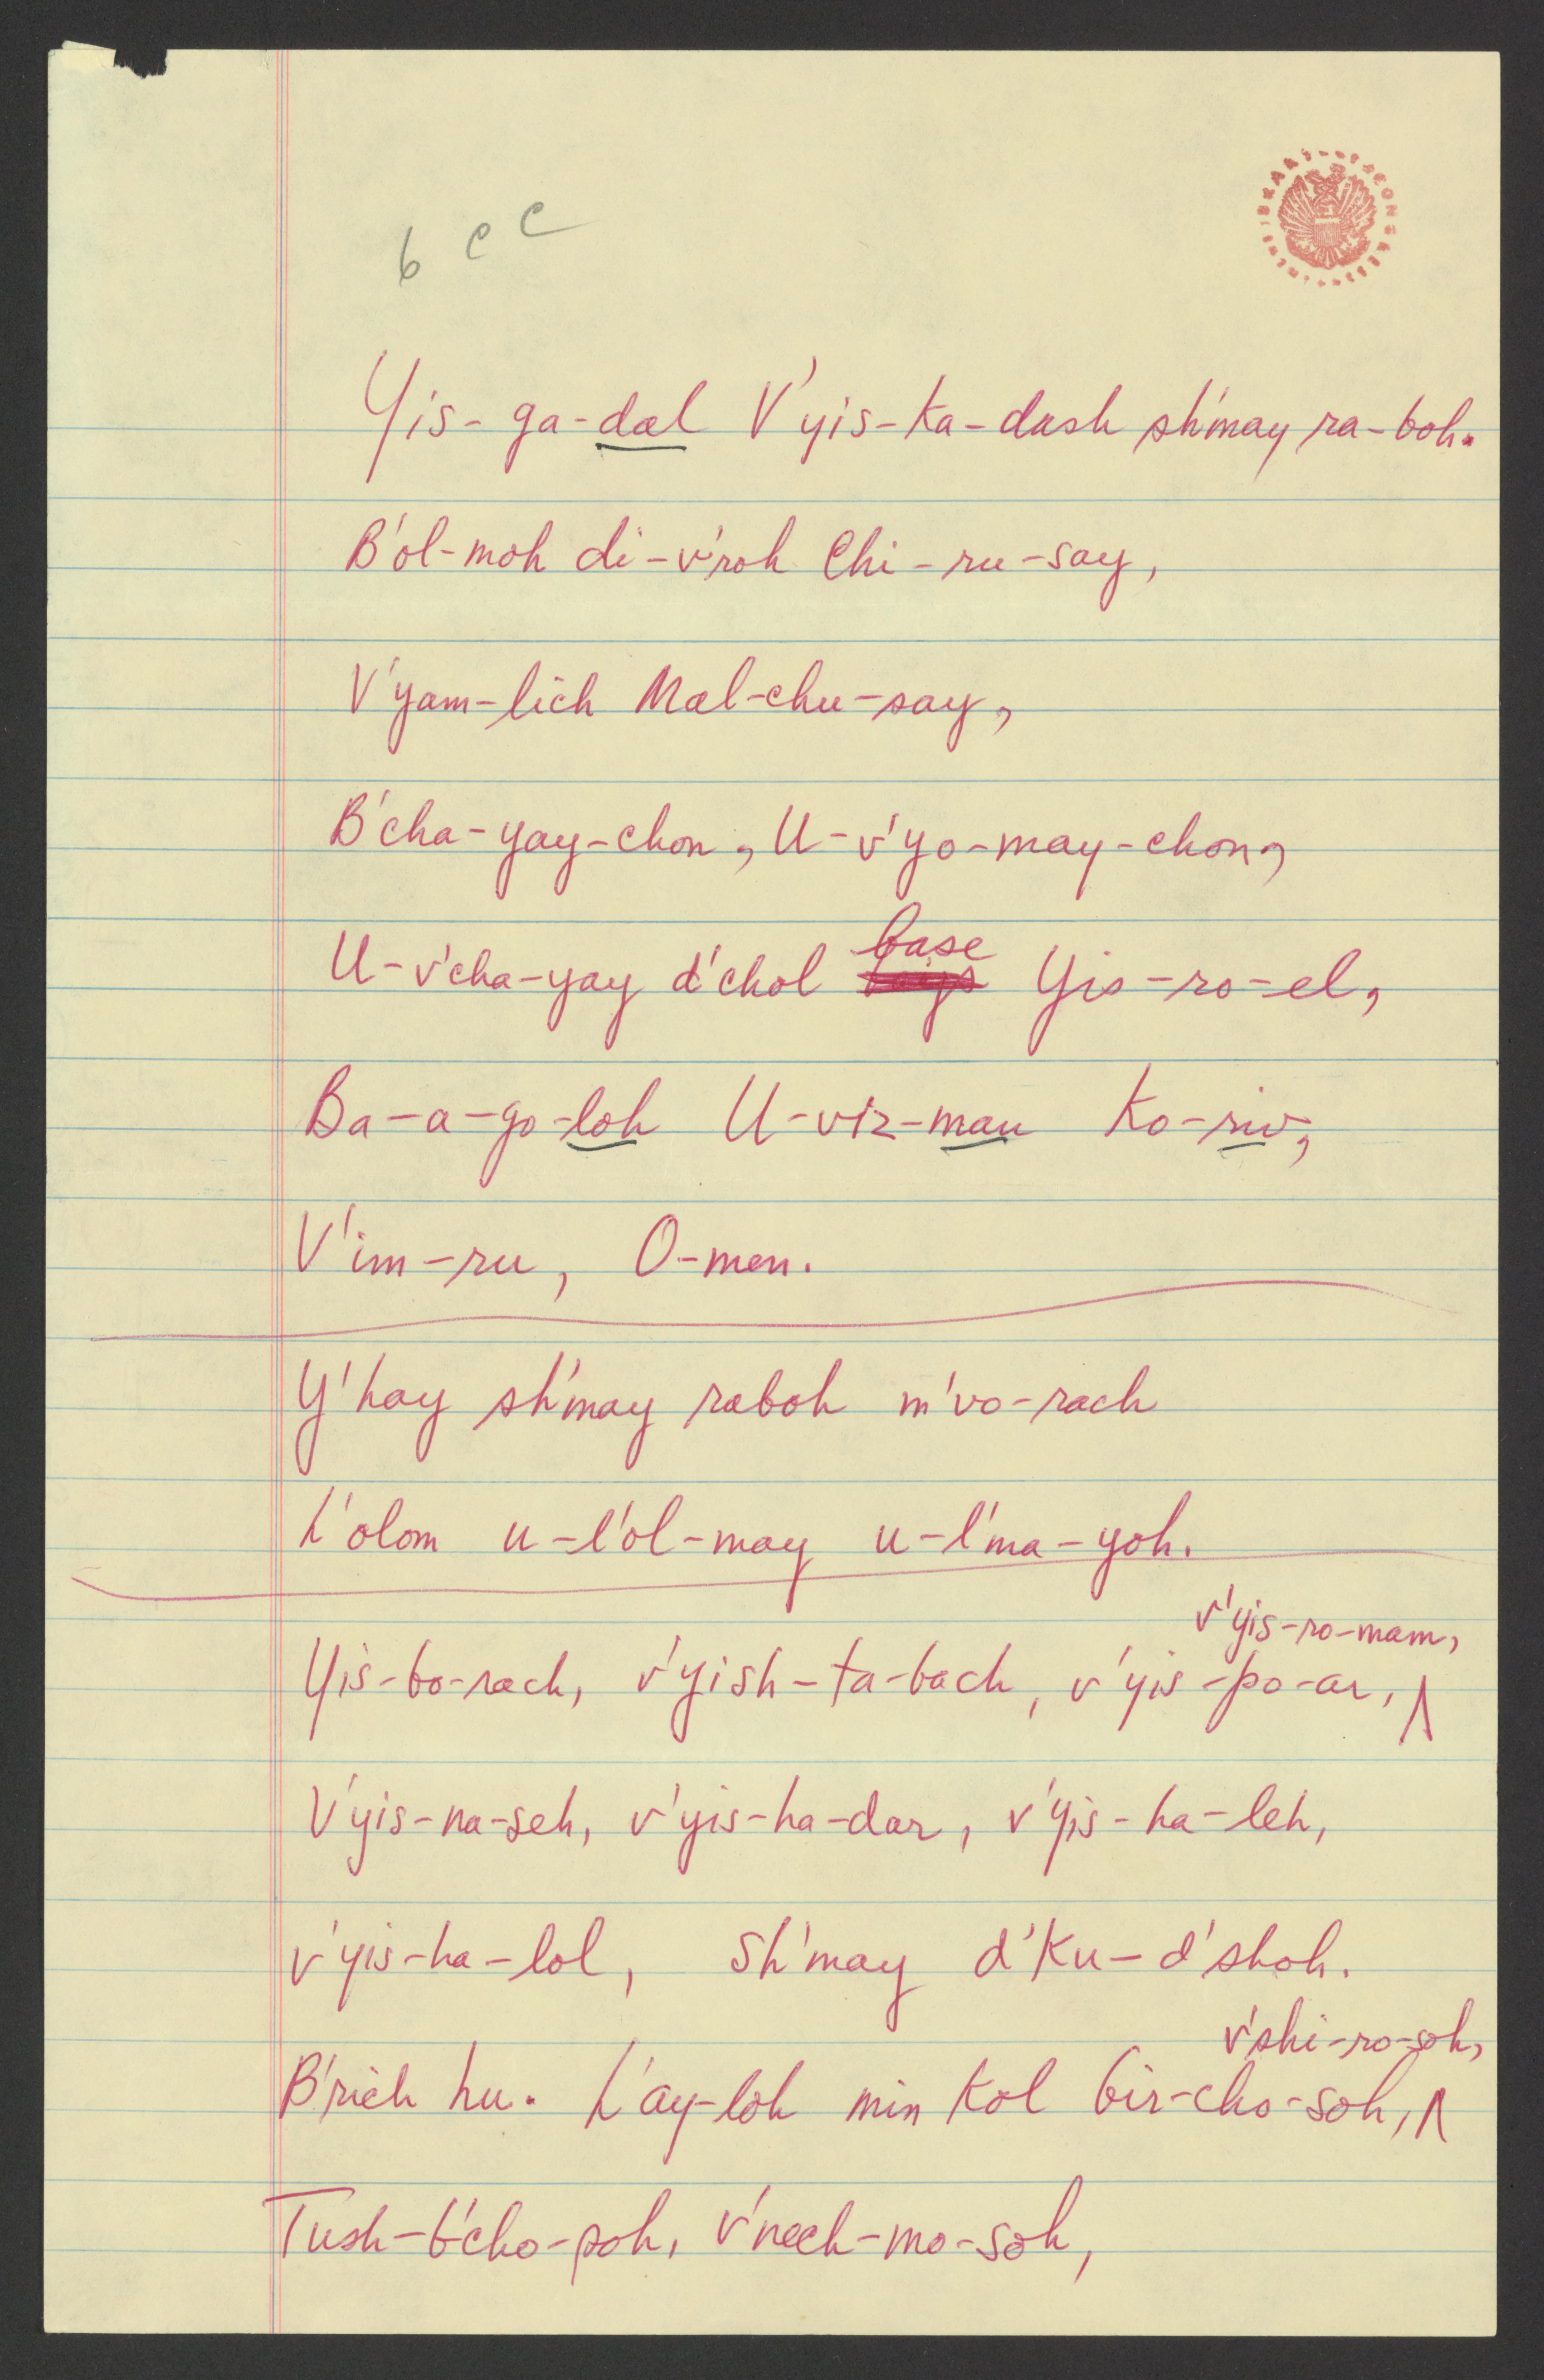 6 c c
Yis-ga-dal V'yis-ka-dash sh'may ra-boh.
B'ol-moh di-v'roh Chi-ru-say,
V'yam-lich Mal-chu-say,
B'cha-yay-chon, U-v'yo-may-chon,
base
U-v'cha-yay d'chol Yis-ro-el,
Ba-a-go-loh U-viz-man Ko-riv,
V'im-ru, O-men.
Y'hay sh'may raboh m'vo-rach
L'olom u-l'ol-may u-l'ma-yoh.
v'yis-ro-mam,
Yis-bo-rach, v'yish-ta-bach, v'yis-po-ar,
V'yis-na-seh, v'yis-ha-dar, v'yis-ha-leh,
v'yis-ha-lol, Sh'may d'Ku-d'shoh.
v'shi-ro-soh,
B'rich hu. L'ay-loh min Kol bir-cho-soh,
Tush-b'cho-soh, v'nech-mo-soh,